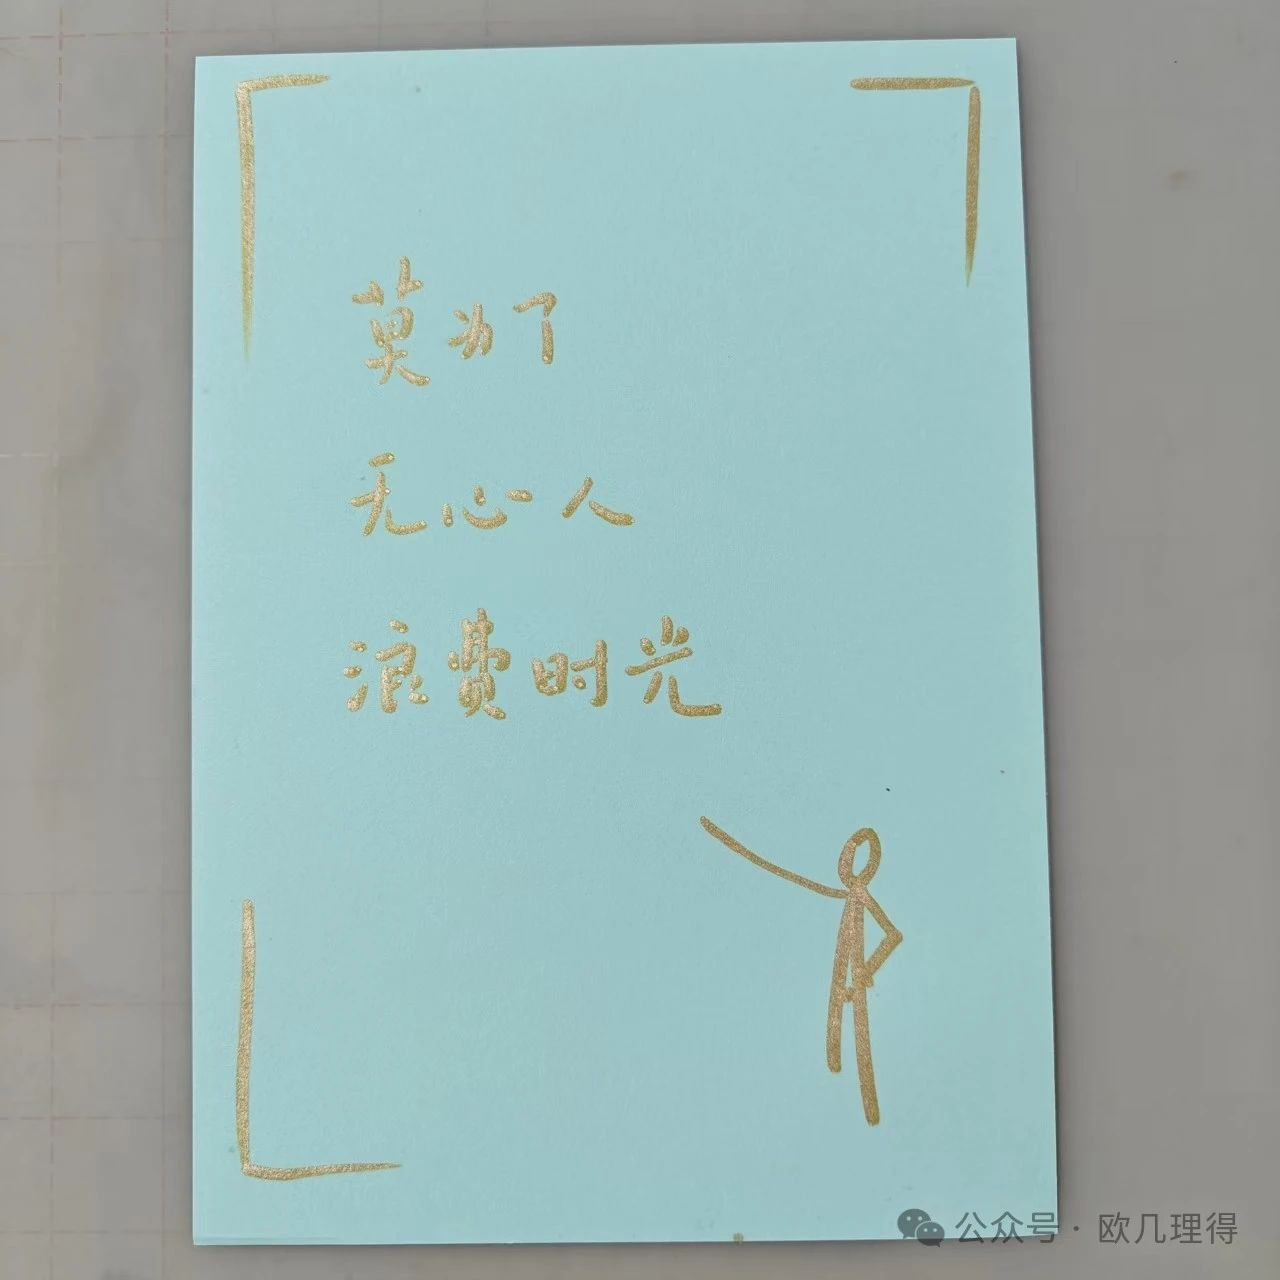 莫为了
无心人
浪费时光
公众号·欧几理得